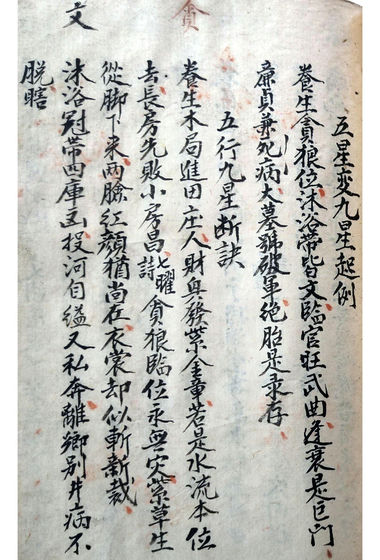 五星變九星起例
養生貪狼位沐浴帶皆文臨官旺武曲逢衰是巨門
廉貞兼死病大墓號破軍絕胎是录存
五行九星断訣
貪
養生木局進田庄人財興發紫金章若是水流本位
去長房先敗小房昌七曜詩貪狼臨位永無灾紫草生
從脚下来兩臉紅顏猶尚在衣裳却似斬新裁
文
沐浴冠帶四庫凶投河自縊又私奔離鄉别井病不
脱瞎